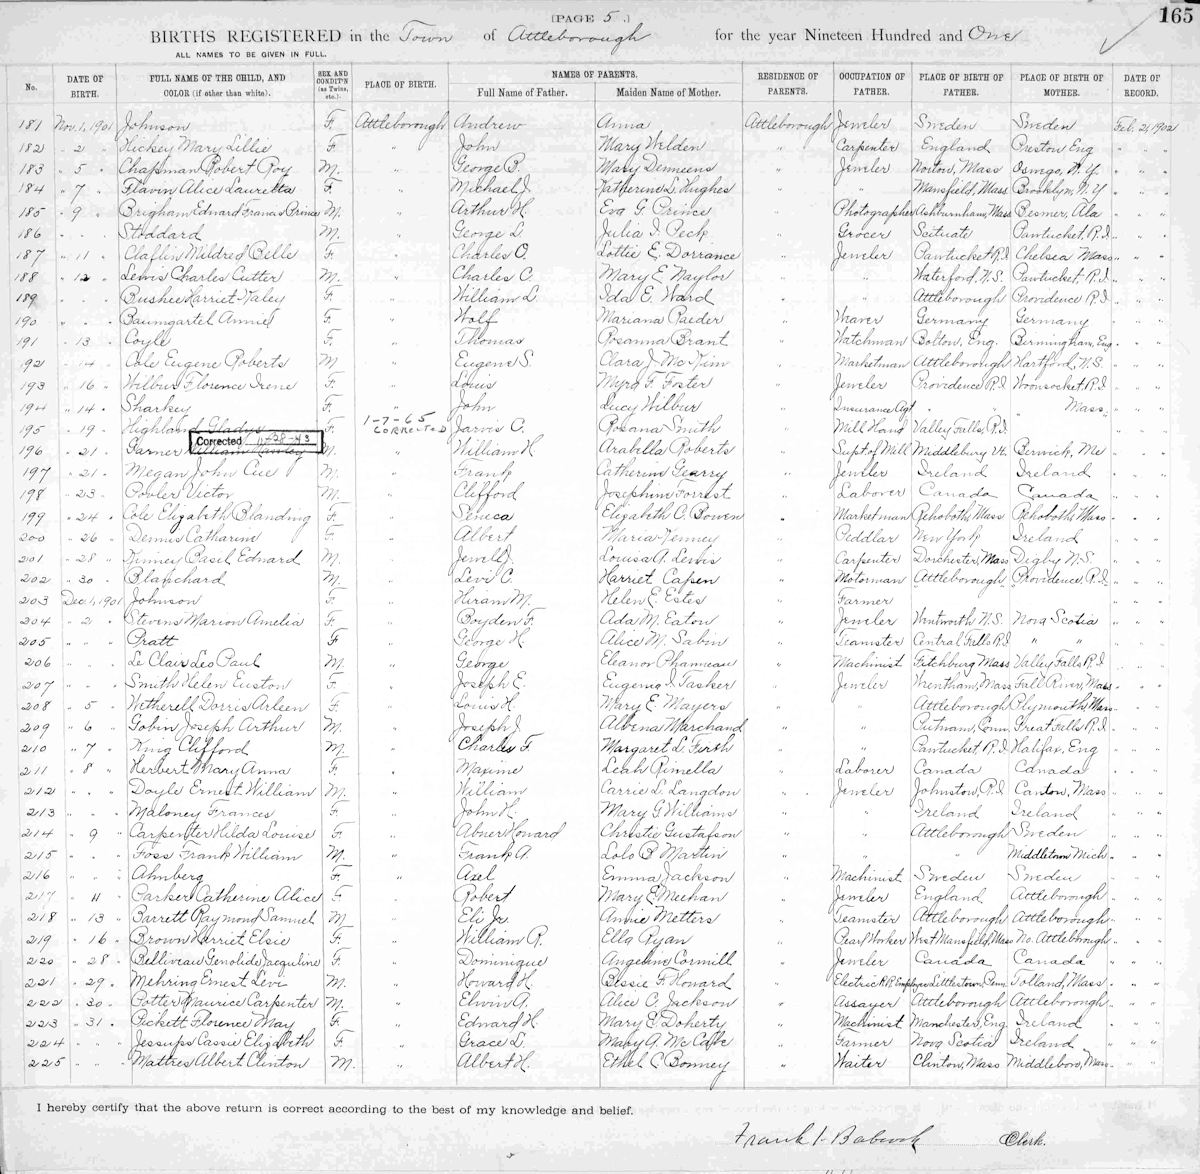 [PAGE 5.]
165
BIRTHS REGISTERED in the Town of Attleborough for the year Nineteen Hundred and One
ALL NAMES TO BE GIVEN IN FULL.
No. DATE OF BIRTH. FULL NAME OF THE CHILD, AND COLOR (if other than white). SEX AND CONDIT'N (as Twins, etc.). PLACE OF BIRTH. NAMES OF PARENTS. Full Name of Father. Maiden Name of Mother. RESIDENCE OF PARENTS. OCCUPATION OF FATHER. PLACE OF BIRTH OF FATHER. PLACE OF BIRTH OF MOTHER. DATE OF RECORD.
181 Nov. 1, 1901 Johnson F. Attleborough Andrew Anna Attleborough Jeweler Sweden Sweden Feb. 2, 1902
182 " 2 " Hickey Mary Lillie F. " John Mary Welden " Carpenter England Preston Eng " " "
183 " 5 " Chapman Robert Roy M. " George B. Mary Demeens " Jeweler Norton, Mass Oswego, N.Y. " " "
184 " 7 " Flavin Alice Lauretta F. " Michael J. Katherine L. Hughes " " Mansfield, Mass Brooklyn, N.Y " " "
185 " 9 " Brigham Edward Francis Prince M. " Arthur H. Eva G. Prince " Photographer Ashburnham, Mass Besmer, Ala " " "
186 " " " Stoddard M. " George L. Julia I. Peck " Grocer Scituate Pawtucket R.I. " " "
187 " 11 " Claflin Mildred Belle F. " Charles O. Lottie E. Dorrance " Jeweler Pawtucket R.I. Chelsea Mass " " "
188 " 12 " Lewis Charles Cutter M. " Charles C. Mary E. Naylor " " Waterford, N.S. Pawtucket, R.I. " " "
189 " " " Bushee Harriet Haley F. " William L. Ida E. Ward " " Attleborough Providence R.I. " " "
190 " " " Baumgartel Annie F. " Wolf Mariana Raeder " Weaver Germany Germany " " "
191 " 13 " Coyle F. " Thomas Rosanna Brant " Watchman Bolton, Eng. Bermingham, Eng. " " "
192 " 14 " Cole Eugene Roberts M " Eugene S. Clara J. McKim " Marketman Attleborough Hartford, N.S. " " "
193 " 16 " Wilbur Florence Irene F. " Louis Myra F. Foster " Jeweler Providence R.I. Woonsocket, R.I. " " "
194 " 14 " Sharkey F. " John Lucy Wilbur " Insurance Agt " " Mass. " " "
195 " 19 " Highland Gladys F. 1-7-65 CORRECTED Jarvis C. Rosana Smith " Mill Hand Valley Falls, R.I. " " "
Corrected 11-28-43
196 " 21 " Garner William M. William H. Arabella Roberts " Supt of Mill Middlebury Vt. Berwick, Me " " "
197 " 21 " Megan John M. " Frank Catherine Gearry " Jeweler Ireland Ireland " " "
198 " 23 " Pooler Victor M. " Clifford Josephine Forrest " Laborer Canada Canada " " "
199 " 24 " Cole Elizabeth Blanding F. " Seneca Elizabeth C. Bowen " Marketman Rehoboth, Mass Rehoboth, Mass " " "
200 " 26 " Dennis Catharine F. " Albert Maria Kenney " Peddlar New York Ireland " " "
201 " 28 " Kinney Basil Edward M. " Jewell J. Louisa A. Lewis " Carpenter Dorchester, Mass Digby N.S. " " "
202 " 30 " Blanchard M. " Levi C. Harriet Capen " Motorman Attleborough Providence, R.I. " " "
203 Dec. 1, 1901 Johnson F. " Hiram M. Helen E. Estes " Farmer " " "
204 " 2 " Stevens Marion Amelia F. " Boyden F. Ada M. Eaton " Jeweler Wentworth N.S. Nova Scotia " " "
205 " " " Pratt F. " George H. Alice M. Sabin " Teamster Central Falls R.I. " " " " "
206 " " " Le Clair Leo Paul M. " George Eleanor " Machinist Fitchburg Mass Valley Falls R.I. " " "
207 " " " Smith Helen Euston F. " Joseph E. Eugenia I. Tasker " Jeweler Wrentham, Mass Fall River, Mass " " "
208 " 5 " Wetherell Dorris Arleen F. " Louis H. Mary E. Mayers " " Attleborough Plymouth, Mass " " "
209 " 6 " Gobin Joseph Arthur M. " Joseph J. Albina Marchand " " Putnam, Conn. Great Falls R.I. " " "
210 " 7 " King Clifford M. " Charles F. Margaret L. Firth " " Pawtucket, R.I. Halifax, Eng " " "
211 " 8 " Herbert Mary Anna F. " Maxime Leah Rimella " Laborer Canada Canada " " "
212 " " " Doyle Ernest William M. " William Carrie L. Langdon " Jeweler Johnston, R.I. Canton, Mass " " "
213 " " " Maloney Frances F. " John H. Mary G. Williams " " Ireland Ireland " " "
214 " 9 " Carpenter Hilda Louise F. " Abner Howard Christie Gustafson " " Attleborough Sweden " " "
215 " " " Foss Frank William M. " Frank A. Lolo B. Martin " " " Middletown Mich " " "
216 " " " Ahnberg F. " Axel Emma Jackson " Machinist Sweden Sweden " " "
217 " 11 " Parker Catherine Alice F. " Robert Mary E. Meehan " Jeweler England Attleborough " " "
218 " 13 " Barrett Raymond Samuel M " Eli Jr. Annie Metters " Teamster Attleborough Attleborough " " "
219 " 16 " Brown Harriet Elsie F. " William R. Ella Ryan " Pearl Worker West Mansfield, Mass No. Attleborough " " "
220 " 28 " Belliveau Genolide Jacquline F. " Dominique Angeline Cormill " Jeweler Canada Canada " " "
221 " 29 " Mehring Ernest Levi M. " Howard H. Bessie F. Howard " Electric R.R. Employee Littlestown, Penn. Tolland, Mass " " "
222 " 30 " Potter Maurice Carpenter M. " Elwin G. Alice C. Jackson " Assayer Attleborough Attleborough " " "
223 " 31 " Pickett Florence May F. " Edward H. Mary E. Doherty " Machinist Manchester, Eng. Ireland " " "
224 " " " Jessups Cassie Elizabeth F. " Grace L. Mary A. McCabe " Farmer Nova Scotia Ireland " " "
225 " " " Mattres Albert Clinton M. " Albert H. Ethel C. Bonney " Waiter Clinton, Mass Middleboro, Mass. " " "
I hereby certify that the above return is correct according to the best of my knowledge and belief.
Frank I. Babcock Clerk.